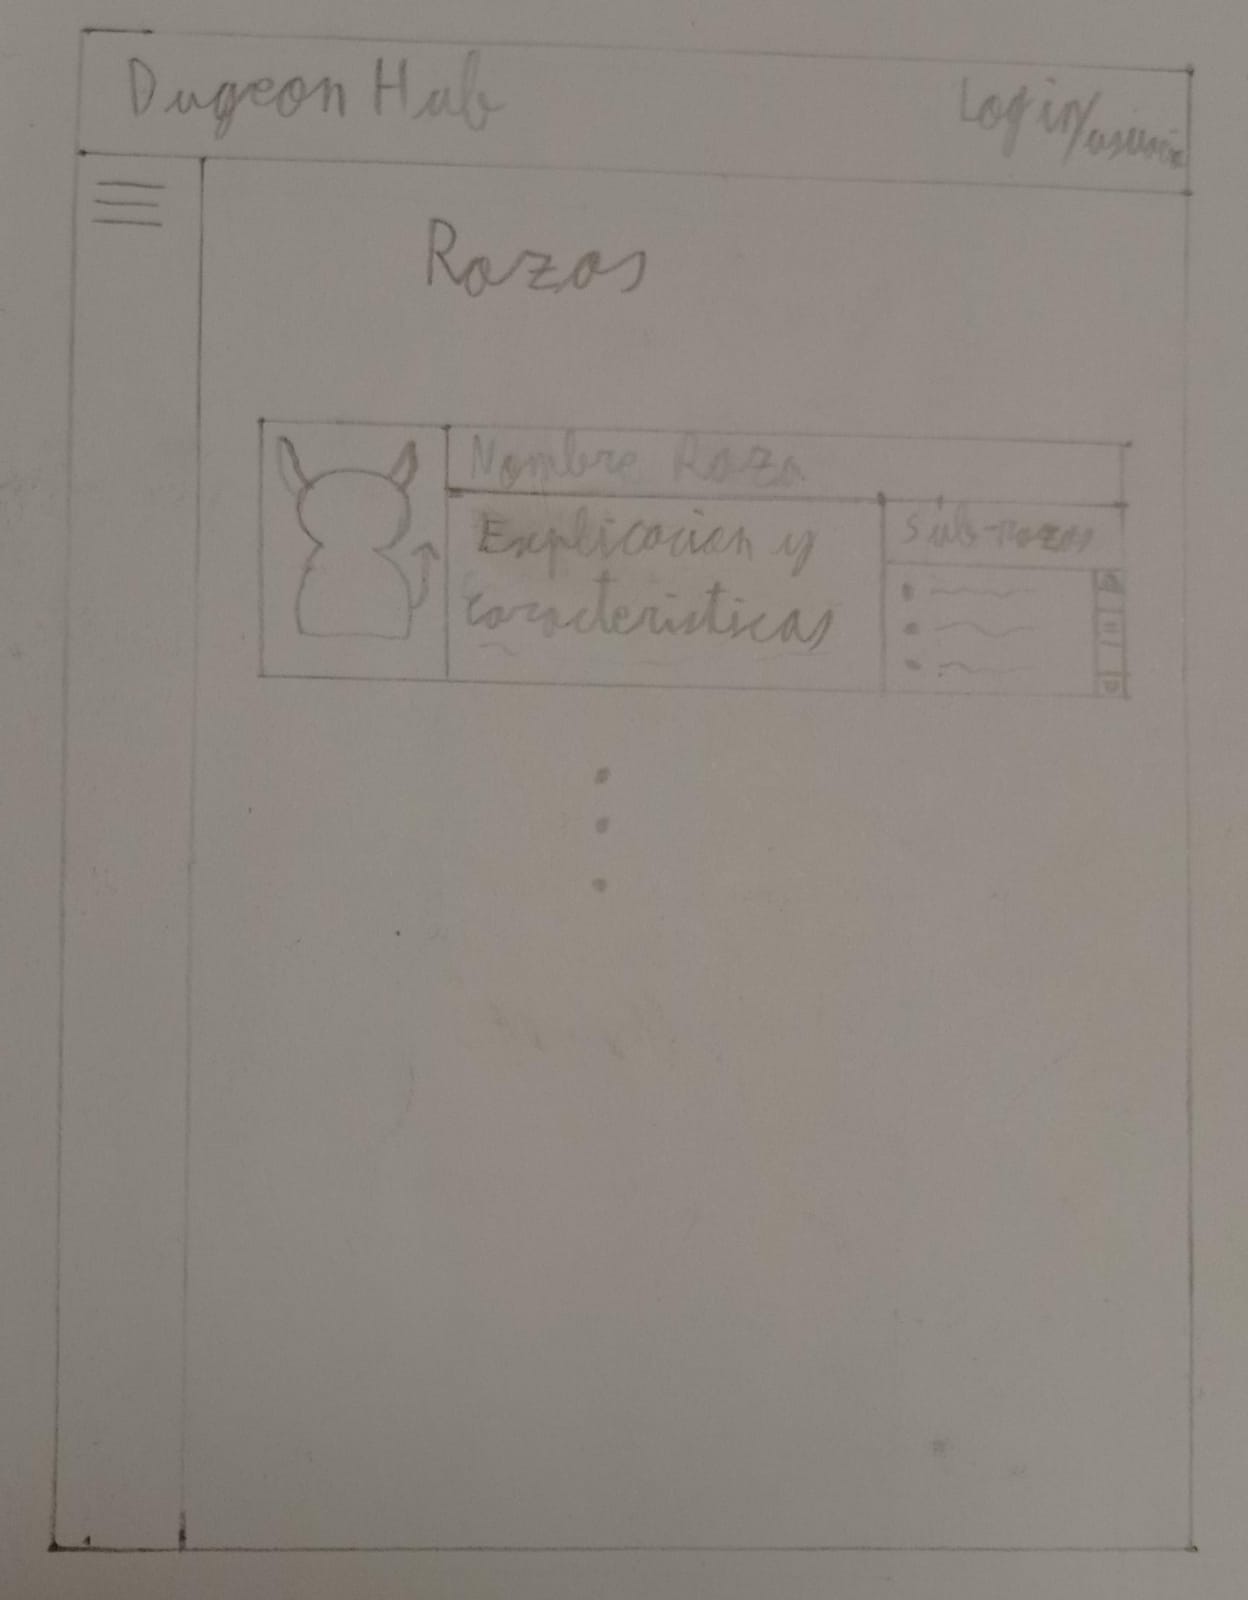 Dugeon Hub
Login/usuario
Razas
Nombre Raza
Explicacion y
caracteristicas
Sub-razas